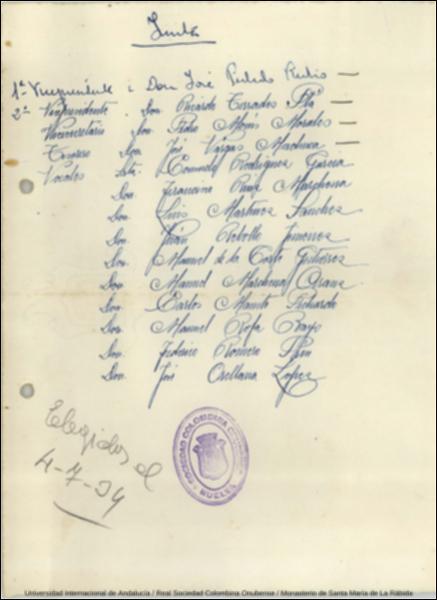 Junta
1er Vicepresidente : Don José Pulido Rubio —
2º Vicepresidente . Don Ricardo Terrades Plá —
Vicesecretario Don Pedro Morales —
Tesorero Don José Vargas Machuca —
Vocales Rodriguez Garcia
Don Francisco Ruiz Marchena
Don Luis Martinez Sanchez
Don Juan Rebollo Jimenez
Don Manuel de la Corte Gutierrez
Don Manuel Marchena
Don Carlos
Don Manuel Rofa
Don Federico Romero
Don José Orellana López
Elegidos el
4-7-54
SOCIEDAD COLOMBINA ONUBENSE
HUELVA
Universidad Internacional de Andalucía / Real Sociedad Colombina Onubense / Monasterio de Santa María de La Rábida